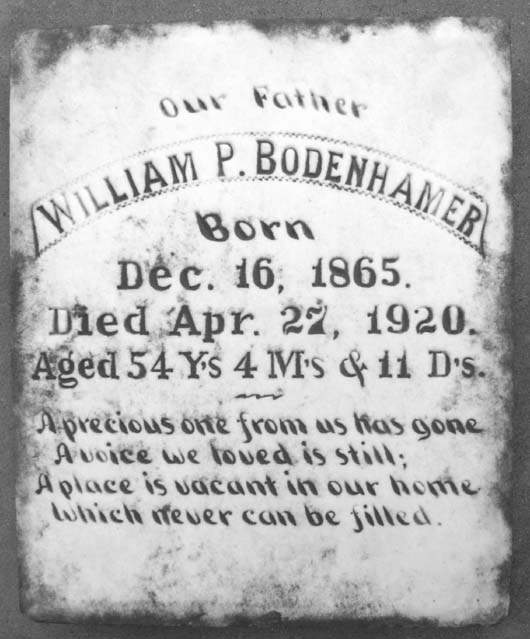 Our Father
WILLIAM P. BODENHAMER
Born
Dec. 16, 1865.
Died Apr. 27, 1920.
Aged 54 Y's 4 M's & 11 D's.
A precious one from us has gone
A voice we loved is still;
A place is vacant in our home
Which never can be filled.